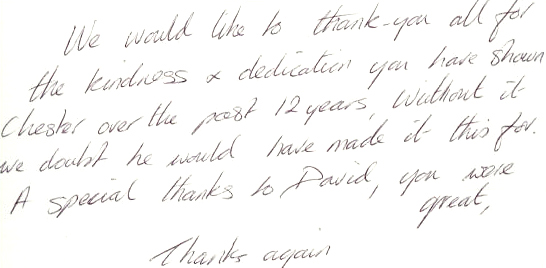 We would like to thank-you all for
the kindness & dedication you have shown
Chester over the past 12 years, Without it
we doubt he would have made it this far.
A special thanks to David, you were
great,
Thanks again